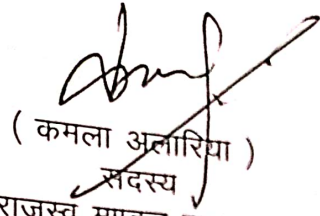 ( कमला अलारिया )
सदस्य
राजस्व